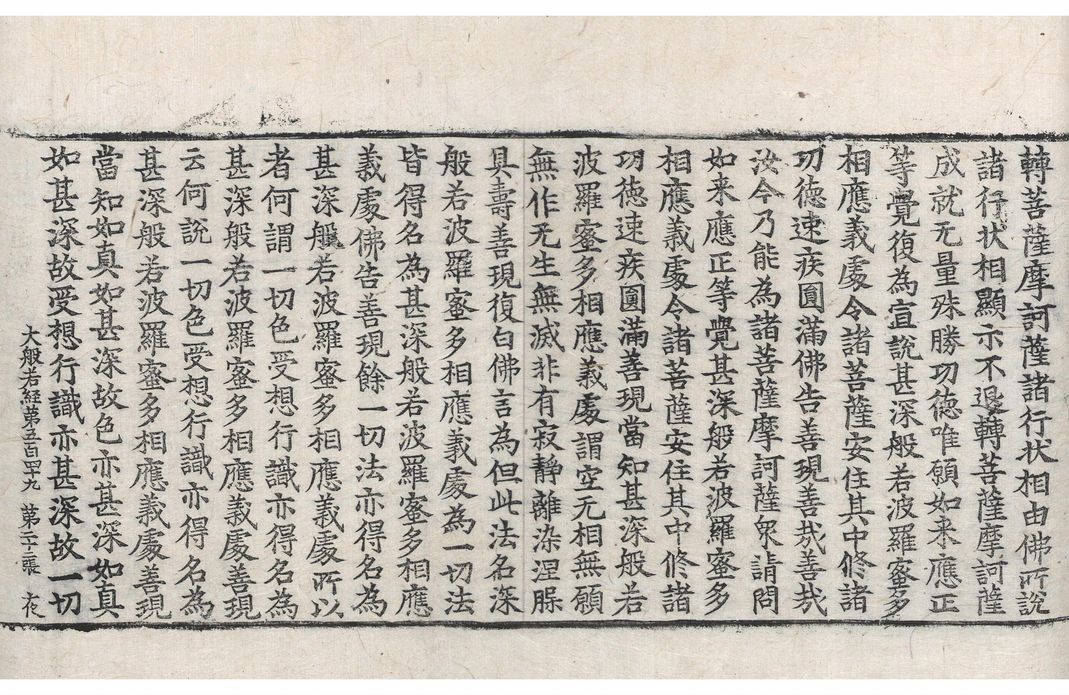 轉菩薩摩訶薩諸行状相由佛所說
諸行状相顯示不退轉菩薩摩訶薩
成就无量殊勝功德唯願如来應正
等覺復為宣說甚深般若波羅蜜多
相應義處令諸菩薩安住其中修諸
功德速疾圓滿佛告善現善哉善哉
汝今乃能為諸菩薩摩訶薩衆請問
如来應正等覺甚深般若波羅蜜多
相應義處令諸菩薩安住其中修諸
功德速疾圓滿善現當知甚深般若
波羅蜜多相應義處謂空无相無願
無作无生無滅非有寂靜離染涅槃
具壽善現復白佛言為但此法名深
般若波羅蜜多相應義處為一切法
皆得名為甚深般若波羅蜜多相應
義處佛告善現餘一切法亦得名為
甚深般若波羅蜜多相應義處所以
者何謂一切色受想行識亦得名為
甚深般若波羅蜜多相應義處善現
云何說一切色受想行識亦得名為
甚深般若波羅蜜多相應義處善現
當知如真如甚深故色亦甚深如真
如甚深故受想行識亦甚深故一切
大般若経第五百四十九 第二十張 夜